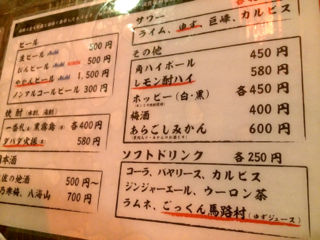 ビール 500円
生ビール Asahi 500円
びんビール Asahi 500円
やかんビール Asahi 1,500円
ノンアルコールビール 300円
焼酎
一番札、黒霧島 各400円
ダバダ火振 580円
本酒
佐の地酒 500円～
乃寒梅、八海山 700円
サワー
ライム、ゆず、巨峰、カルピス
その他 450円
角ハイボール 580円
レモン酎ハイ 各450円
ホッピー(白・黒)
梅酒 400円
あらごしみかん 600円
ソフトドリンク 各250円
コーラ、バヤリース、カルピス
ジンジャーエール、ウーロン茶
ラムネ、ごっくん馬路村(ゆずジュース)